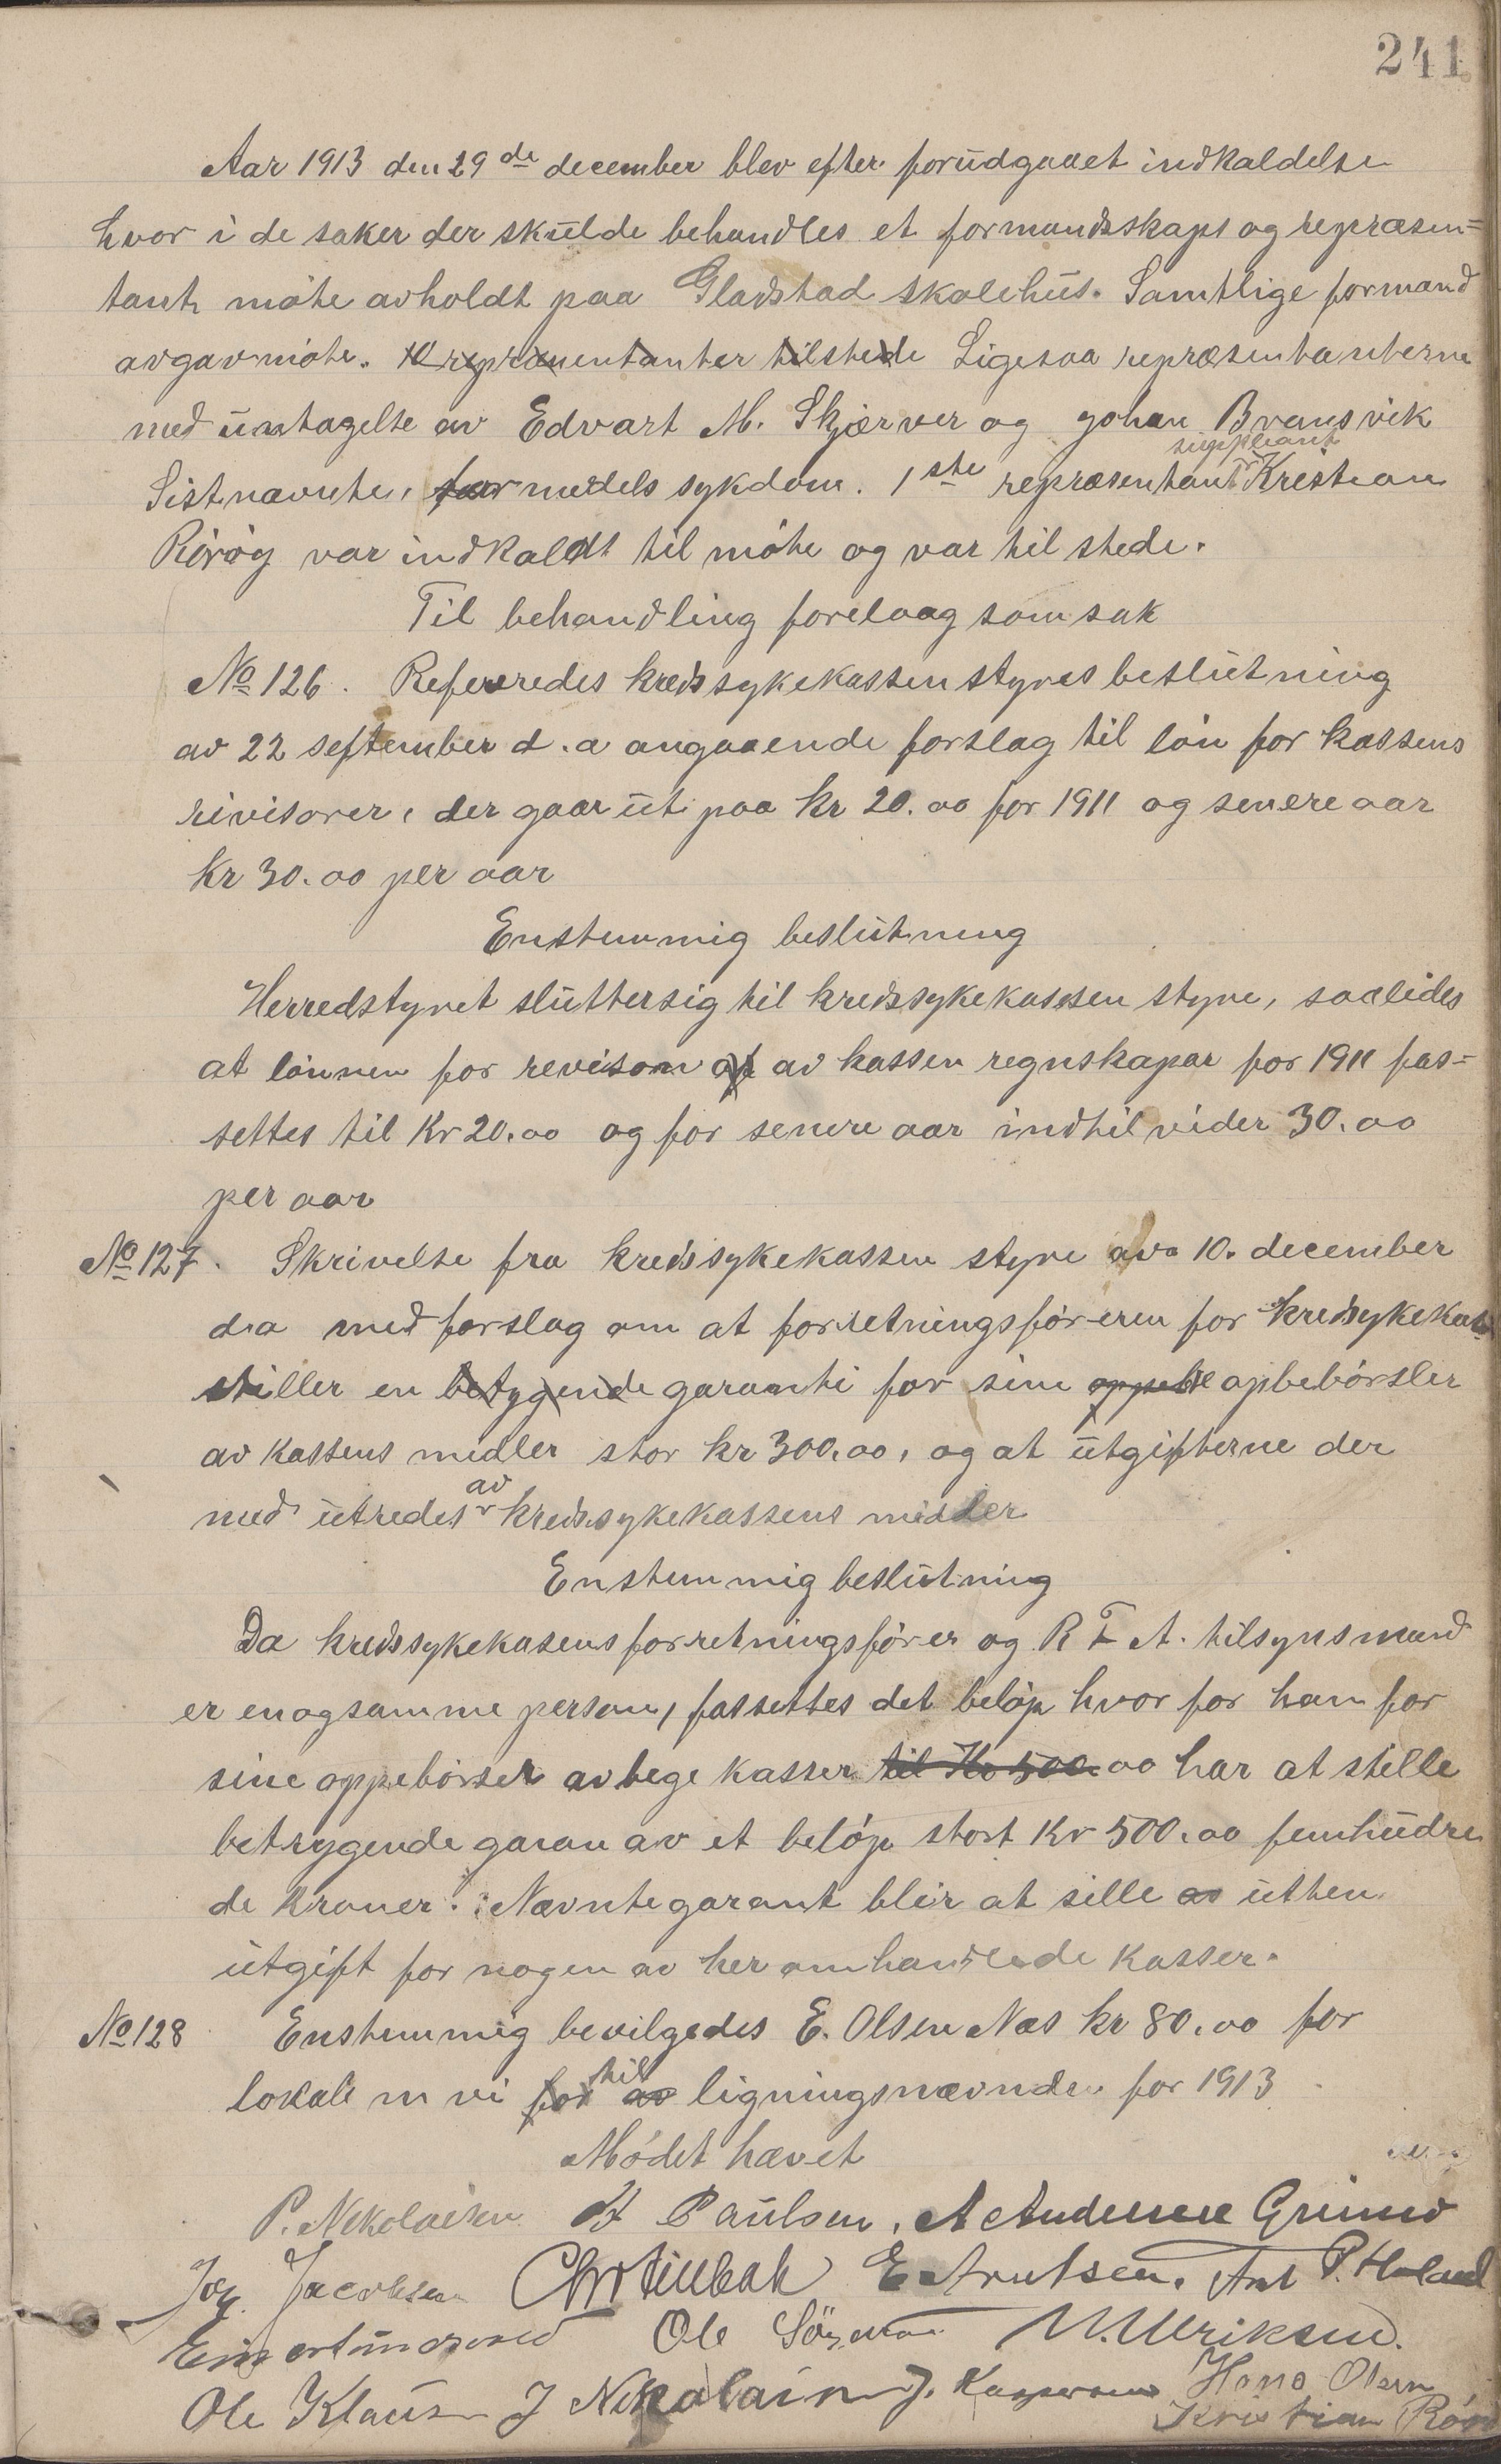 241
Aar 1913 den 29de december blev efter forudgaaet indkaldelse
hvor i de saker der skulde behandles et formandsskaps og repræsen=
tant møte avholdt paa Gladstad skolehus. Samtlige formænd
avgav møte. 10 repræsentanter tilstede Ligesaa repræsentanterne
med untagelse av Edvart M. Skjærver og Johan Brænsvik
Sistnævnte, for medels sykdom. 1ste repræsentant suppleant Kristian
Rörög var indkaldt til møte og var til stede.
Til behandling forelaag som sak
No 126. Refereredes kredssykekassen styres beslutning
av 22 september d.a angaaende forslag til løn for kassens
rivisorer, der gaar ut paa kr 20.00 for 1911 og senere aar
kr 30.00 per aar
Enstemmig beslutning
Herredstyret slutter sig til kredssykekassen styre, saaledes
at lønnen for revison af av kassen regnskaper for 1911 fas=
settes til Kr 20.00 og for senere aar indtil vider 30.00
per aar
No 127. Skrivelse fra kredssykekassen styre av 10. december
d.a med forslag om at forretningsføreren for kredsykekas
stiller en betygende garanti for sine oppebe opbebørsler
av kassens midler stor kr 300.00, og at utgifterne der
med utredes av kredssykekassens midler
Enstemmig beslutning
Da kredssykekasens forretningsfører og R T A. tilsynsmand
er en og samme person, fassettes det beløp hvor for han for
sine oppebørser av bege kasser til Kr 500.00 har at stille
betrygende garan av et beløp stort Kr 500.00 femhundre
de kroner. Nævnte garant blir at sille av utten
utgift for nogen av her omhandlede kasser.
No 128 Enstemmig bevilgedes E. Olsen Næs kr 80.00 for
lokale m vi for av til ligningsnævnden for 1913
Mödet hævet
P. Nikolaisen H Paulsen. A Andersen Grimsø
Jog. Jacobsen E Arntsen. Ant P. Holand
Ole M. Ulriksen.
Ole Klausen J Nikolaisen J. Kaspersen Hans Olsen
Kristian Röröy